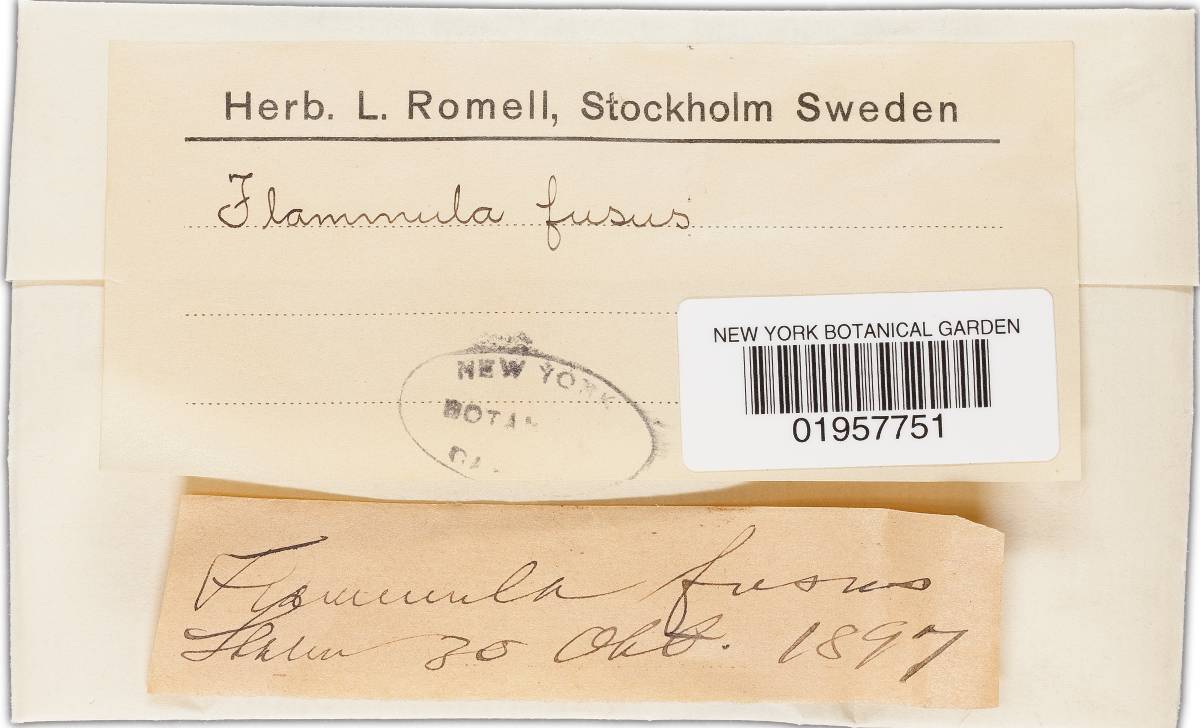 Herb. L. Romell, Stockholm Sweden
Flammula fusus
NEW YORK
BOTAN
GA
NEW YORK BOTANICAL GARDEN
01957751
Flammula fusus
30 Okt. 1897